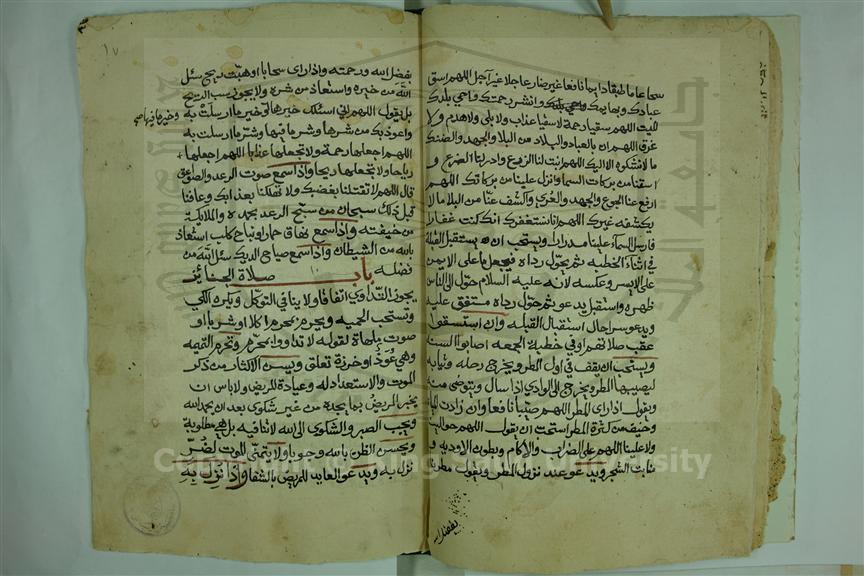 سحا عاما طبقا دايما نافعا غير ضار عاجلا غير آجل اللهم اسق
عبادك وبهايمك وانشر رحمتك واحيي بلدك
الميت اللهم سقيا رحمة لا سقيا عذاب ولا بلاء ولا هدم ولا
غرق اللهم ان بالعباد والبلاد من البلا والجهد والضنك
ما لا نشكوه الا اليك اللهم انبت لنا الزرع وادر لنا الضرع و
اسقنا من بركات السما وانزل علينا من بركاتك اللهم
ارفع عنا الجوع والجهد والعري واكشف عنا من البلا ما لا
يكشفه غيرك اللهم انا نستغفرك انك كنت غفارا
فارسل السماء علينا مدرارا ويستحب ان يستقبل القبلة
في اثناء الخطبه ثم يحول رداه فيجعل ما على الايمن
على الايسر وعكسه لانه عليه السلام حول الى الناس
ظهره واستقبل يدعو ثم حول رداه متفق عليه
ويدعو سرا حال استقبال القبله وان استسقوا
عقب صلاتهم او في خطبة الجمعه اصابوا السنة
ويستحب ان يقف في اول المطر ويخرج رحله وثيابه
ليصيبها المطر ويخرج الى الوادي اذا سال ويتوضى منه
ويقول اذا راى المطر اللهم صيبا نافعا وان زادت المياه
وخيف من كثرة المطر استحب ان يقول اللهم حوالينا
ولا علينا اللهم على الضراب والاكام وبطون الاوديه و
منابت الشجر ويدعو عند نزول المطر ويقول مطرنا
بفضل الله
١٧
بفضل الله ورحمته واذا راى سحابا او هبت ريح سئل
الله من خيره واستعاذ من شره ولا يجوز سب الريح
بل يقول اللهم اني اسئلك خيرها وخير ما ارسلت به
وخير ما فيها صح
واعوذ بك من شرها وشر ما فيها وشر ما ارسلت به
اللهم اجعلها رحمة ولا تجعلها عذابا اللهم اجعلها
رياحا ولا تجعلها ريحا واذا سمع صوت الرعد والصواعق
قال اللهم لا تقتلنا بغضبك ولا تهلكنا بعذابك وعافنا
قبل ذلك سبحان من سبح الرعد بحمده والملايكة
من خيفته واذا سمع نهاق حمار او نباح كلب استعاذ
بالله من الشيطان واذا سمع صياح الديك سئل الله من
فضله باب صلاة الجنائز
يجوز التداوي اتفاقا ولا ينافي التوكل ويكره الكي
وتستحب الحميه ويحرم بمحرم اكلا او شربا او
صوت ملهاة لقوله لا تداووا بمحرم وتحرم التميمه
وهي عوذ او خرزة تعلق ويسن الاكثار من ذكر
الموت والاستعداد له وعيادة المريض ولا باس ان
يخبر المريض بما يجده من غير شكوى بعد ان يحمد الله
ويجب الصبر والشكوى الى الله لا تنافيه بل هي مطلوبة
ويحسن الظن بالله وجوبا ولا يتمنى الموت لضر
نزل به ويدعو العايد للمريض بالشفا واذا نزل به